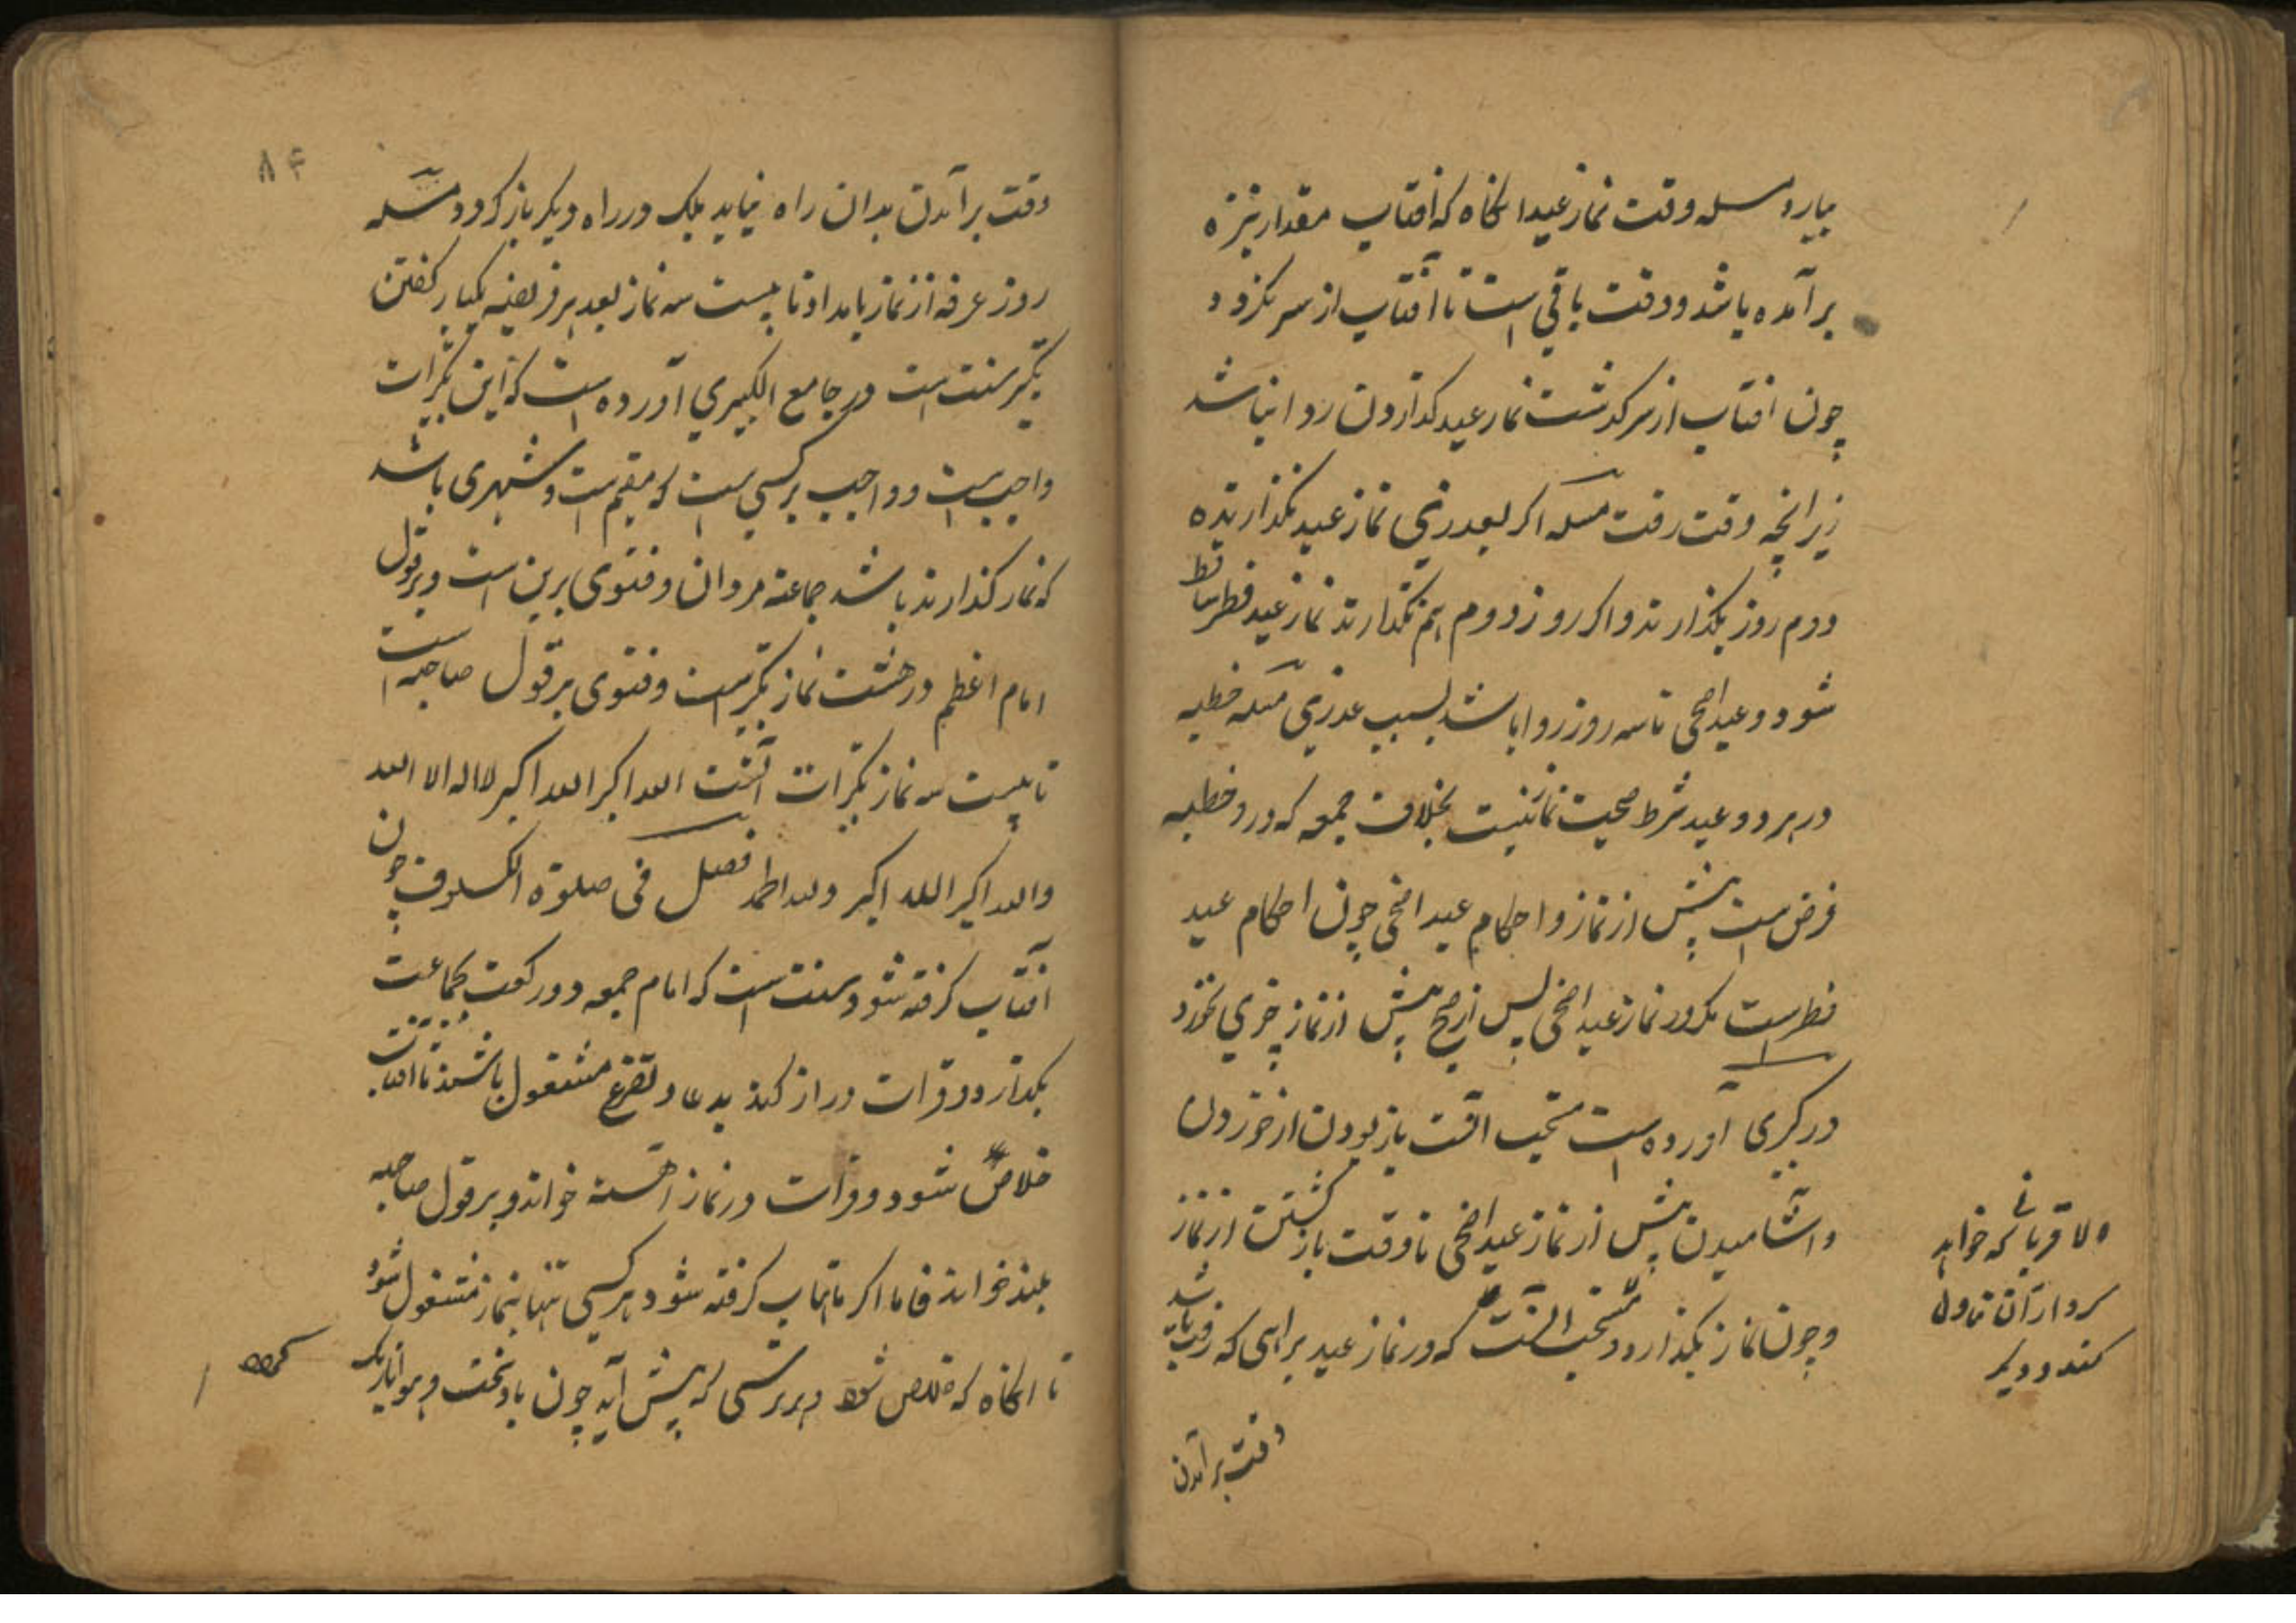 بیارد مسله وقت نماز عید انگاه که افتاب مقدار نیزه
برآمده باشد و وقت باقی است تا آفتاب از سر بگردد و
چون افتاب از سر گذشت نماز عید گذاردن روا نباشد
زیرانچه وقت رفت مسله اگر بعذری نماز عید نگذاریده
دوم روز بگذارند و اگر روز دوم هم نگذارند نماز عید فطر ساقط
شود و عید اضحی تا سه روز روا باشد بسبب عذری مسله خطبه
در هر دو عید شرط صحیت نماز نیست بخلاف جمعه که درو خطبه
فرض است پیش از نماز و احکام عید اضحی چون احکام عید
فطر است مگر در نماز عید اضحی پس از صبح پیش از نماز چیزی نخورد
در کبری آورده است مستحب آنست باز بودن از خوردن
و اشامیدن پیش از نماز عید اضحی تا وقت باز گشتن از نماز
و چون نماز بگذارد و مستحب آنست که در نماز عید براهی که رفته باشد
وقت برآمدن
الا قربانی که خواهد
کرد از آن تناول
کند و دیگر
۸۴
وقت برآمدن بدان راه نیاید بلک در راه دیگر باز گردد مسله
روز عرفه از نماز بامداد تا بیست سه نماز بعد هر فریضه یکبار گفتن
تکبیر سنت است در جامع الکبیری آورده است که این تکبیرات
واجب است و واجب بر کسی است که مقیم است و شهری باشد
که نماز گذارند باشد جماعة مردان و فتوی برین است و بر قول
امام اعظم در هشت نماز تکبیر است و فتوی بر قول صاحبیه است
تا بیست سه نماز تکبیرات آنست الله اکبر الله اکبر لا اله الا الله
والله اکبر الله اکبر ولله الحمد فصل فی صلوة الکسوف چون
آفتاب گرفته شود سنت است که امام جمعه دو رکعت بجماعت
بگذارد و قرات دراز کند بدعا و تضرع مشغول باشند تا آفتاب
خلاص شود و قرات در نماز اهسته خواند و بر قول صاحبیه
بلند خواند فاما اگر ماهتاب گرفته شود هر کسی تنها بنماز مشغول شود
تا انگاه که خلاص شود و هر ترسی که پیش آید چون باد سخت و هوا تاریک